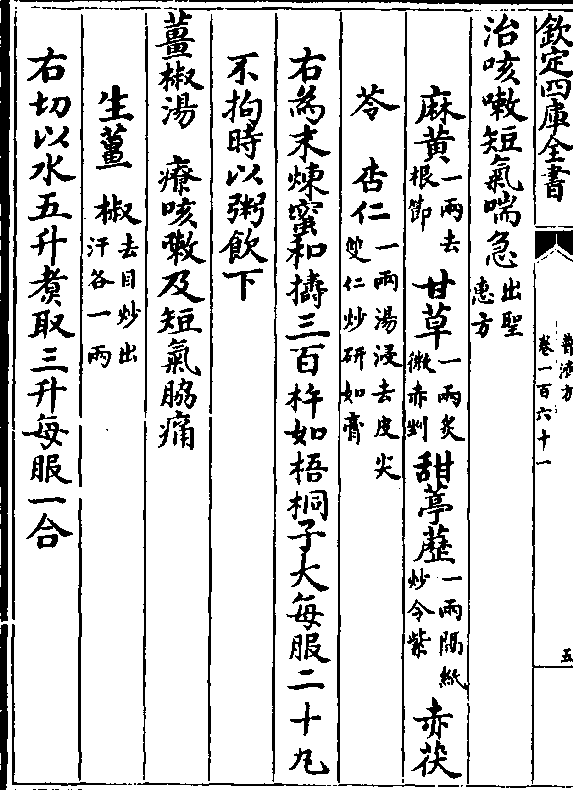 欽定四庫全書
普濟方
卷一百六十一
五
治咳嗽短氣喘急出聖惠方
麻黄一兩去根節 甘草一兩炙微赤剉 甜葶藶一兩隔紙炒令紫 赤茯
苓 杏仁一兩湯浸去皮尖雙仁炒研如膏
右為末煉蜜和擣三百杵如梧桐子大每服二十丸
不拘時以粥飲下
薑椒湯 療咳嗽及短氣脇痛
生薑 椒去目炒出汗各一兩
右切以水五升煑取三升每服一合